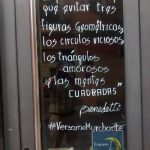 que evitar tres
figuras Geométricas,
los circulos viciosos,
los triángulos
amorosos
y las mentes
CUADRADAS"
Benedetti